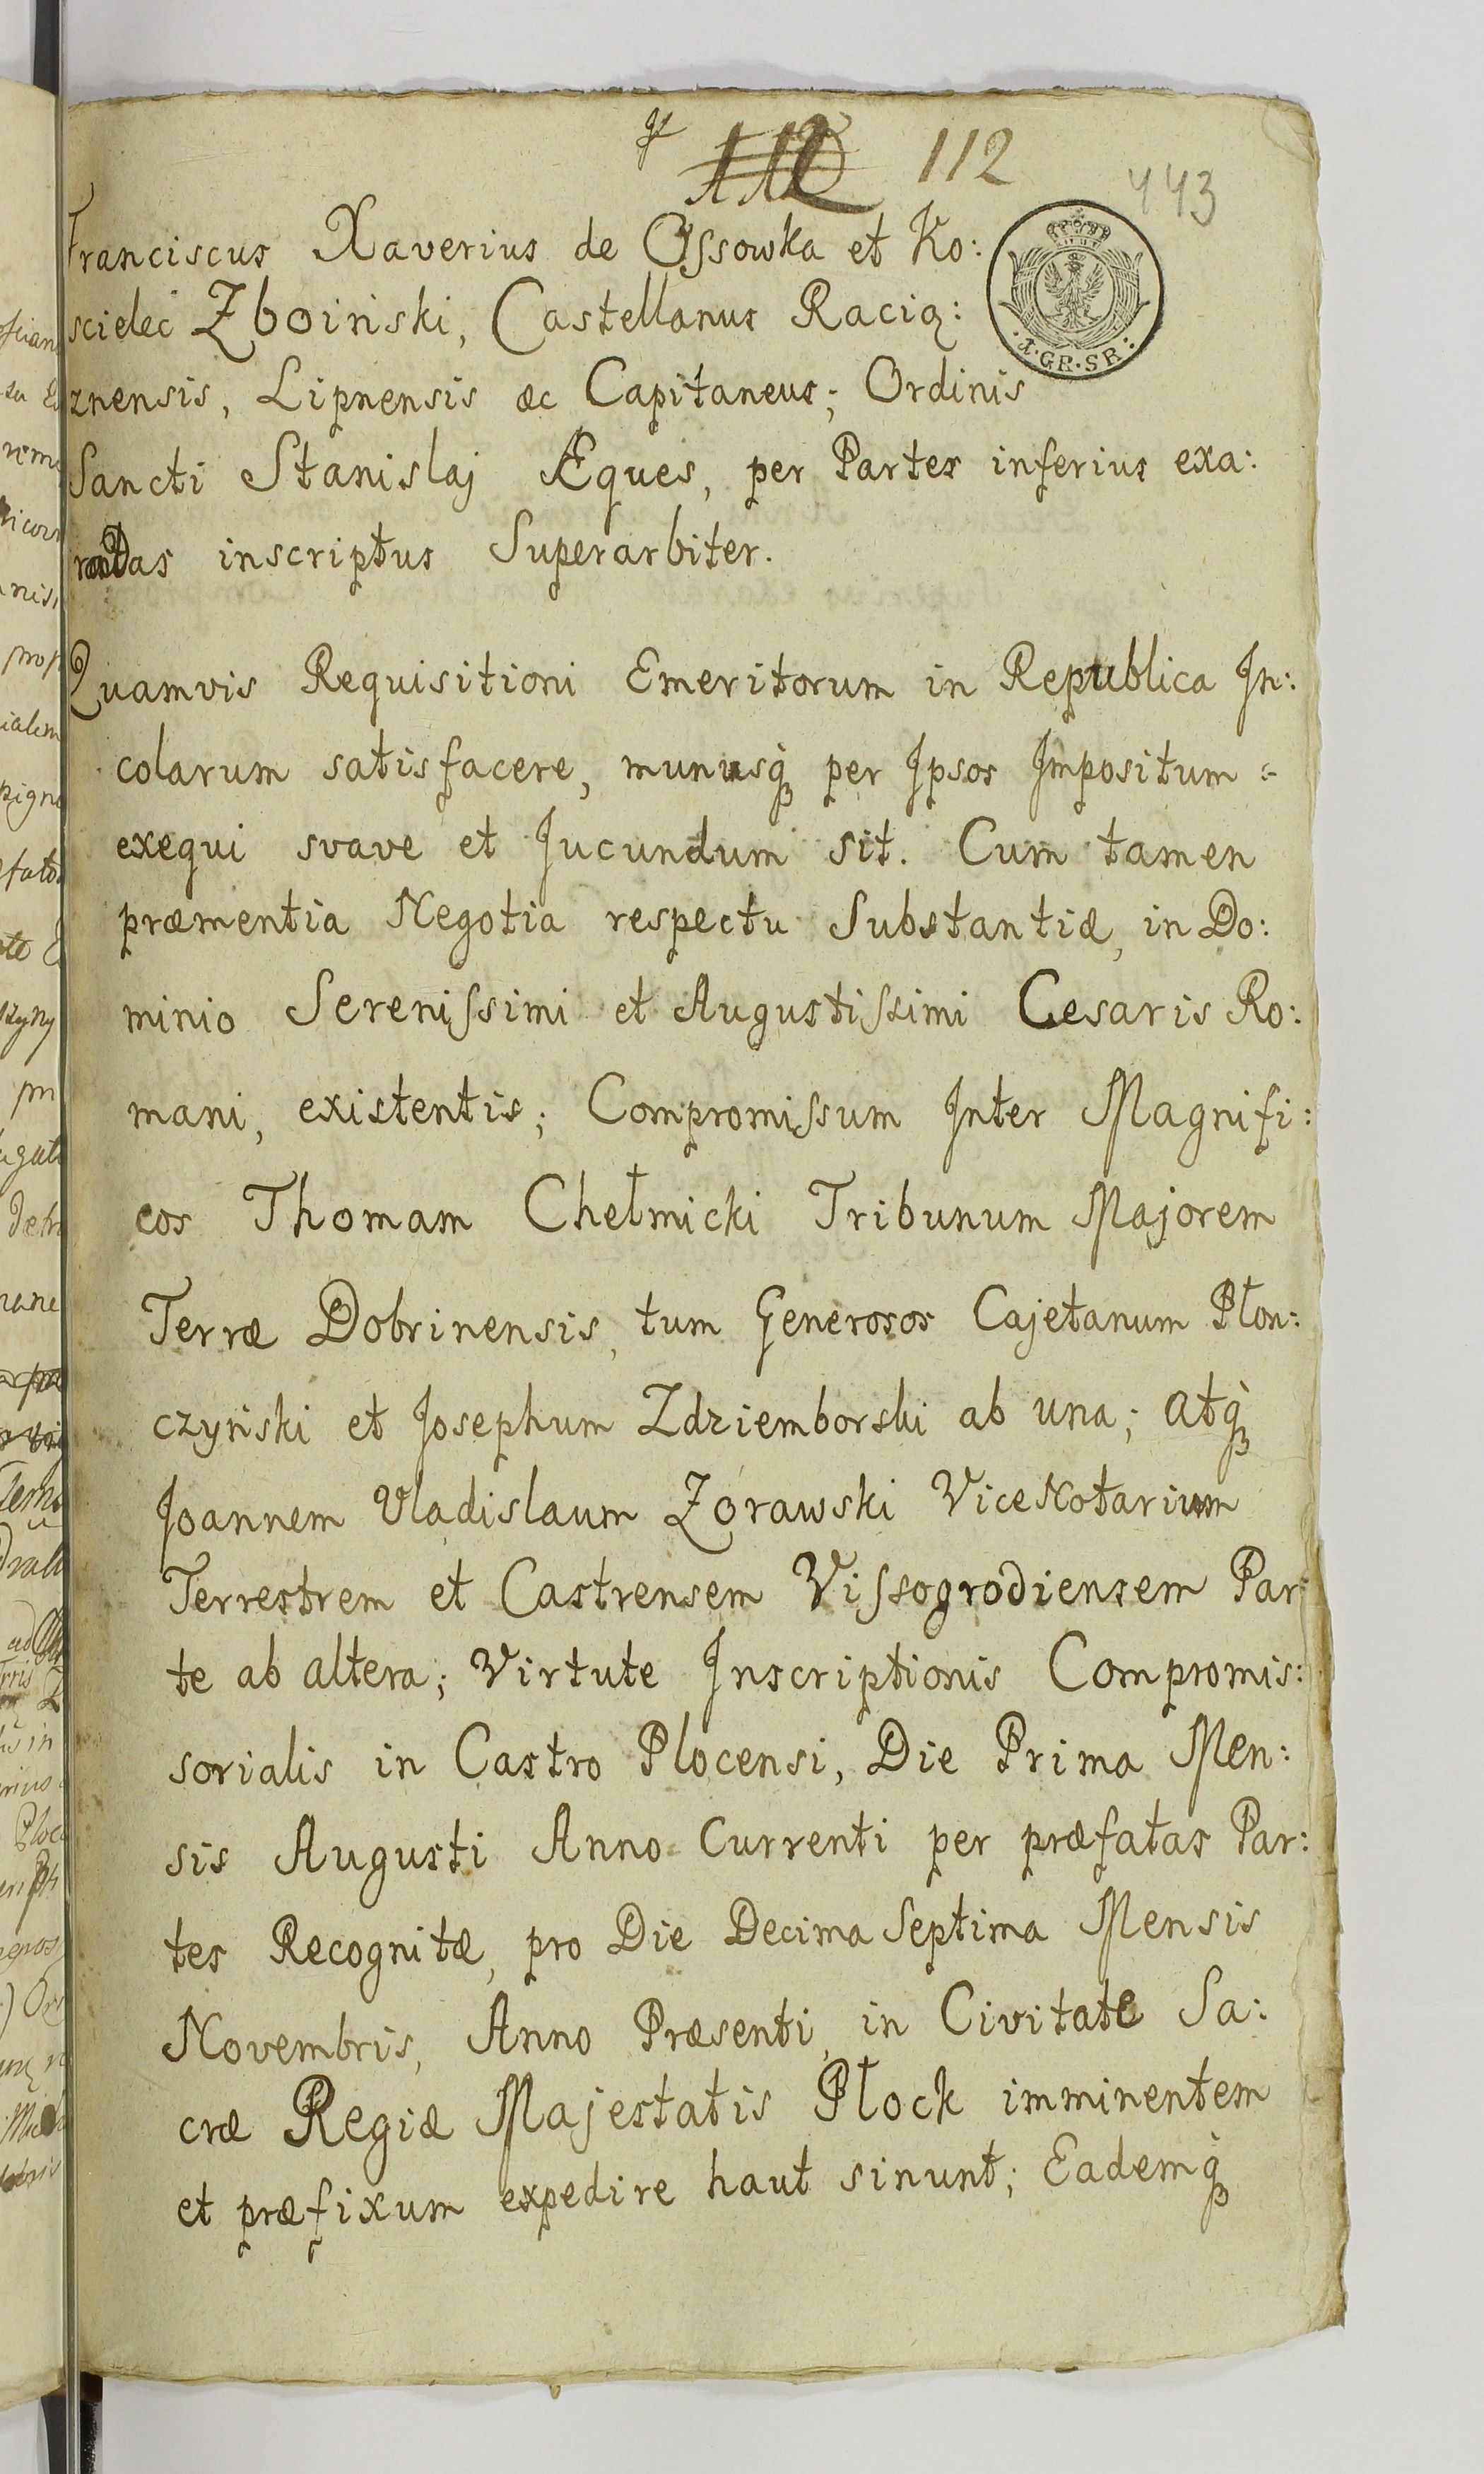 112 112 443
Franciscus Xaverius de Ossowka et Ko:
scielec Zboiński, Castellanus Racią:
·1·GR·SR·:
znensis, Lipnensis &c Capitaneus; Ordinis
Sancti Stanislaj Æques, per Partes inferius exa:
ratas inscriptus Superarbiter.
Quamvis Requisitioni Emeritorum in Republica In:
colarum satisfacere, munusq̀ per Ipsos Impositum
exequi svave et Jucundum sit. Cum tamen
præmentia Negotia respectu Substantiæ, in Do:
minio Serenissimi et Augustissimi Cesaris Ro:
mani, existentis; Compromissum Inter Magnifi:
cos Thomam Chełmicki Tribunum Majorem
Terræ Dobrinensis, tum Generosos Cajetanum Płon:
czyński et Josephum Zdziemborski ab una; atq̀
Joannem Vladislaum Zórawski ViceNotarium
Terrestrem et Castrensem Vissogrodiensem Par:
te ab altera; Virtute Inscriptionis Compromis:
sorialis in Castro Plocensi, Die Prima Men:
sis Augusti Anno Currenti per præfatas Par:
tes Recognitæ, pro Die Decima Septima Mensis
Novembris, Anno Præsenti, in Civitate Sa:
cræ Regiæ Majestatis Płock imminentem
et præfixum expedire haut sinunt; Eademq̀